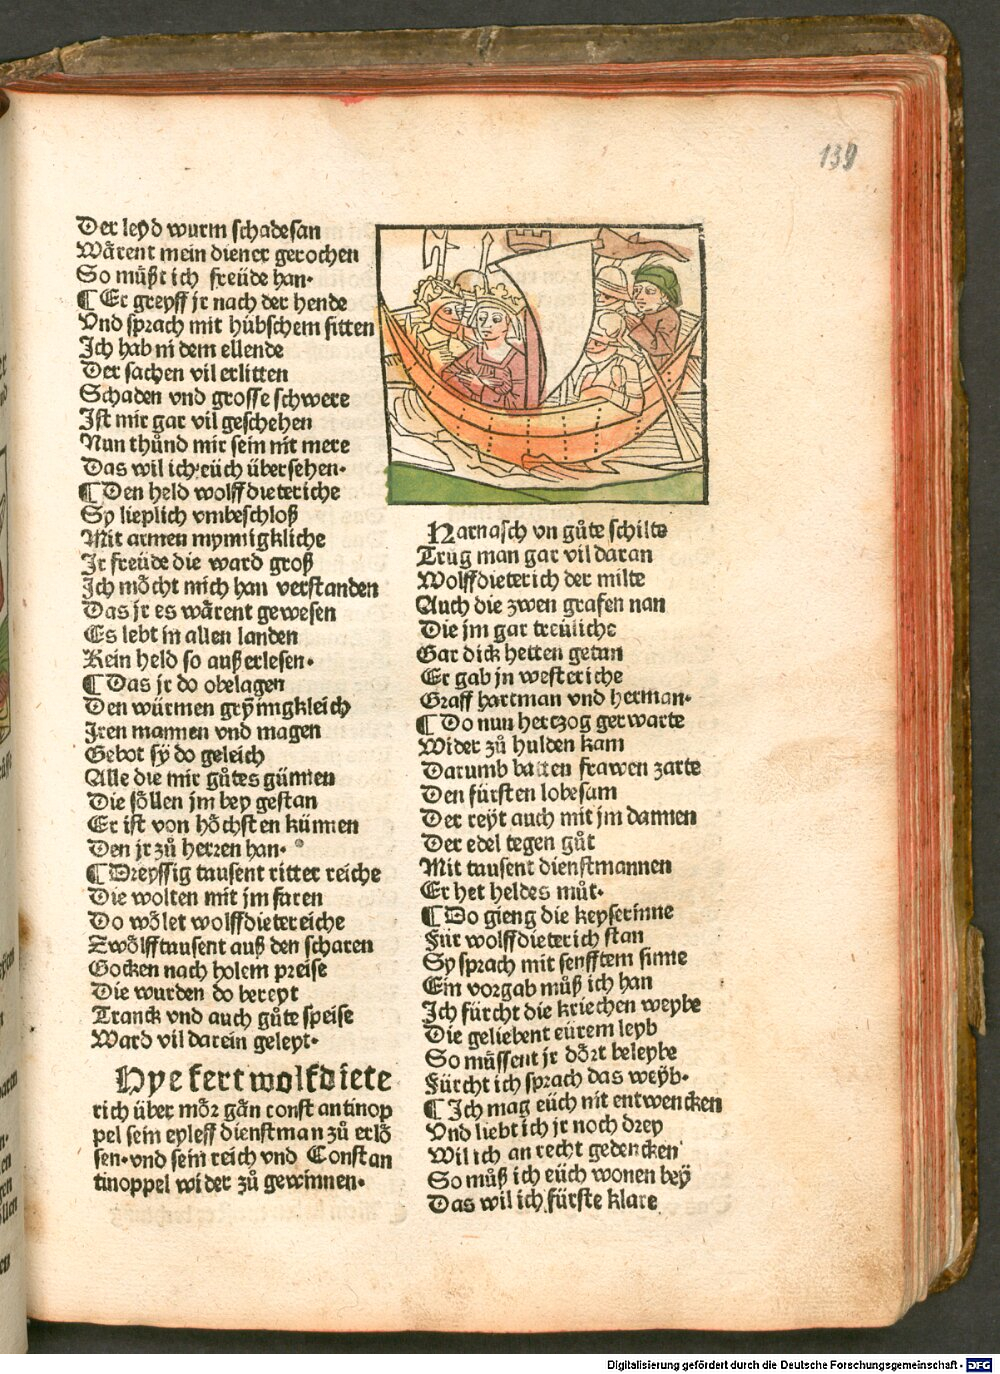 139
Der leyd wurm schadesan
Wårent mein diener gerochen
So můßt ich freüde han.
¶ Er greyff jr nach der hende
Vnd sprach mit hübschem sitten
Jch hab in dem ellende
Der sachen vil erlitten
Schaden vnd grosse schwere
Jst mir gar vil geschehen
Nun thůnd mir sein nit mere
Das wil ich eüch übersehen.
¶ Den held wolffdieteriche
Sy lieplich vmbeschloß
Mit armen mynnigkliche
Jr freüde die ward groß
Jch möcht mich han verstanden
Das jr es wårent gewesen
Es lebt in allen landen
Kein held so außerlesen.
¶ Das jr do obelagen
Den würmen grÿmigkleich
Jren mannen vnd magen
Gebot sÿ do geleich
Alle die mir gůtes günnen
Die söllen jm bey gestan
Er ist von höchsten künnen
Den jr zů herren han.
¶ Dreyssig tausent ritter reiche
Die wolten mit jm faren
Do wölet wolffdietereiche
Zwölfftausent auß den scharen
Gocken nach holem preise
Die wurden do bereyt
Tranck vnd auch gůte speise
Ward vil darein geleyt.
Hye fert wolfdiete
rich über mör gån constantinop
pel sein eyleff dienstman zů erlö
sen. vnd sein reich vnd Constan
tinoppel wider zů gewinnen.
Harnasch vn gůte schilte
Trůg man gar vil daran
Wolffdieterich der milte
Auch die zwen grafen nan
Die jm gar treüliche
Gar dick hetten getan
Er gab jn westeriche
Graff hartman vnd herman.
¶ Do nun hertzog gerwarte
Wider zů hulden kam
Darumb batten frawen zarte
Den fürsten lobesam
Der reÿt auch mit jm dannen
Der edel tegen gůt
Mit tausent dienstmannen
Er het heldes můt.
¶ Do gieng die keyserinne
Für wolffdieterich stan
Sy sprach mit senfftem sinne
Ein vorgab můß ich han
Jch fürcht die kriechen weybe
Die geliebent eürem leyb
So müssent jr dört beleybe
Fürcht ich sprach das weÿb.
¶ Jch mag eüch nit entwencken
Vnd liebt ich jr noch drey
Wil ich an recht gedencken
So můß ich eüch wonen beÿ
Das wil ich fürste klare
Digitalisierung gefördert durch die Deutsche Forschungsgemeinschaft - DFG